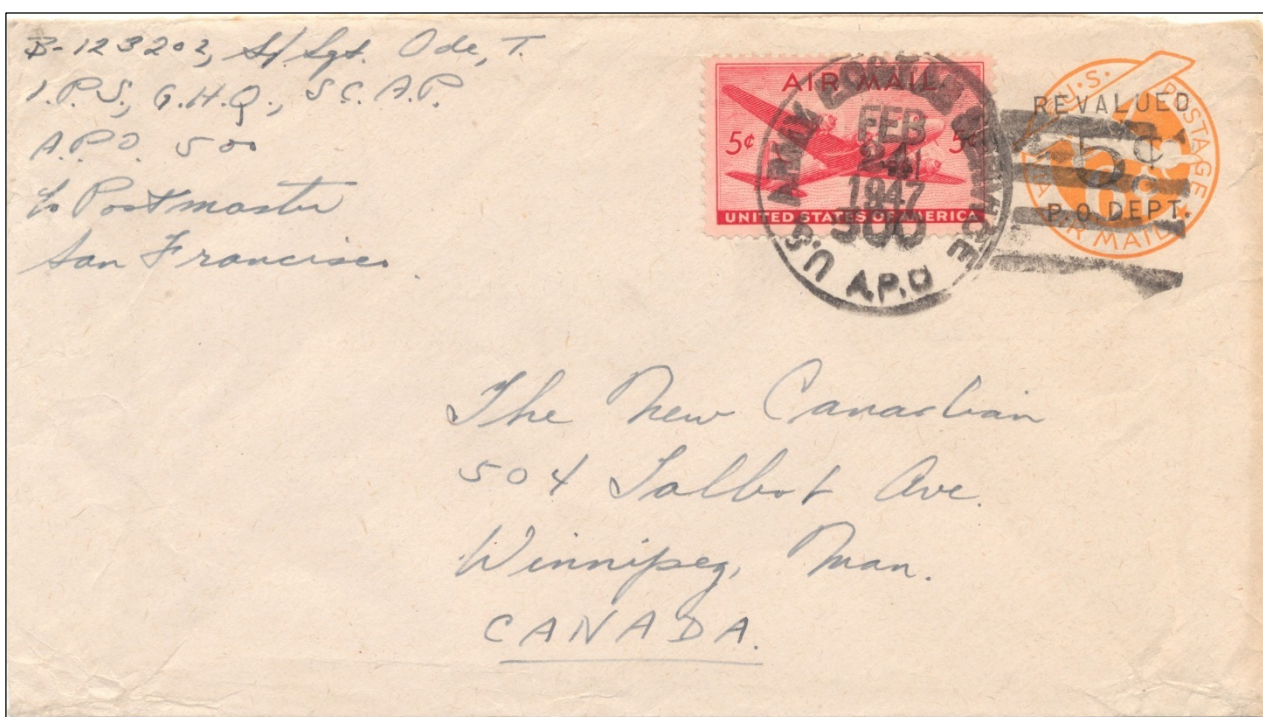 B-123203, S/Sgt. Ode, T.
I.P.S., G.H.Q., S.C.A.P.
A.P.O. 500
c/o Postmaster
San Francisco.
AIR MAIL
5¢ 5¢
UNITED STATES OF AMERICA
U.S. ARMY POSTAL SERVICE
FEB
24
1947
500
A.P.O
U.S. POSTAGE
REVALUED
5¢
P.O. DEPT.
AIR MAIL
The New Canadian
504 Talbot Ave.
Winnipeg, Man.
CANADA.